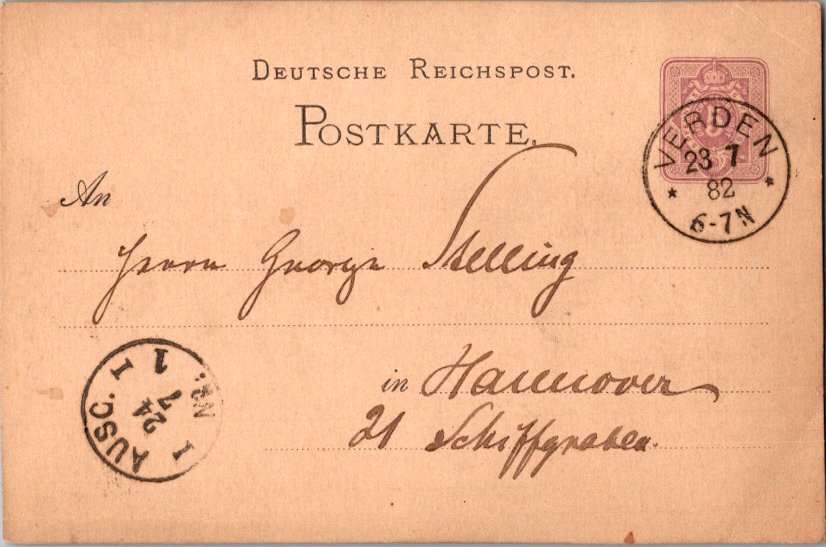 DEUTSCHE REICHSPOST.
POSTKARTE.
VERDEN
23 7
82
6-7N
An
Herrn George Stelling
in Hannover
21 Schiffgraben.
AUSG. I
1
24
7
N:. I